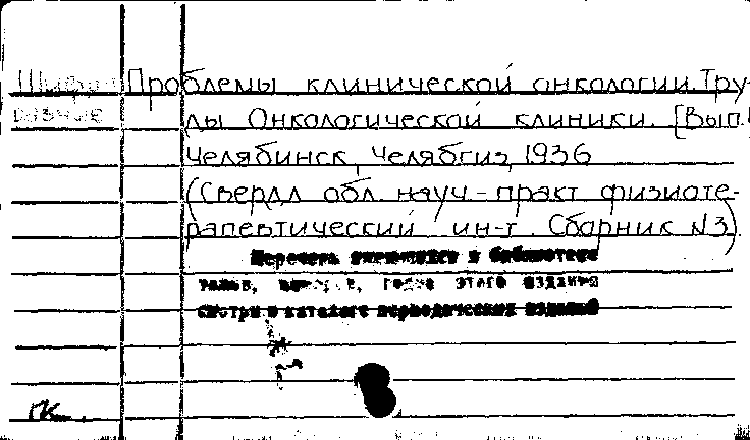 Шифры Проблемы клинической онкологии. Тру-
разные ды Онкологической клиники. [Вып.
Челябинск, Челябгиз, 1936
(Свердл обл. науч.-практ физиоте-
рапевтический ин-т. Сборник №3)
Перечень имеющихся в библиотеке
томов, выпусков, годов этого издания
смотри в каталоге периодических изданий